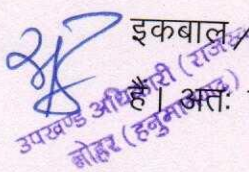 इकबाल /
हैं। अतः
उपखण्ड अधिकारी (राजस्व)
नोहर (हनुमानगढ़)